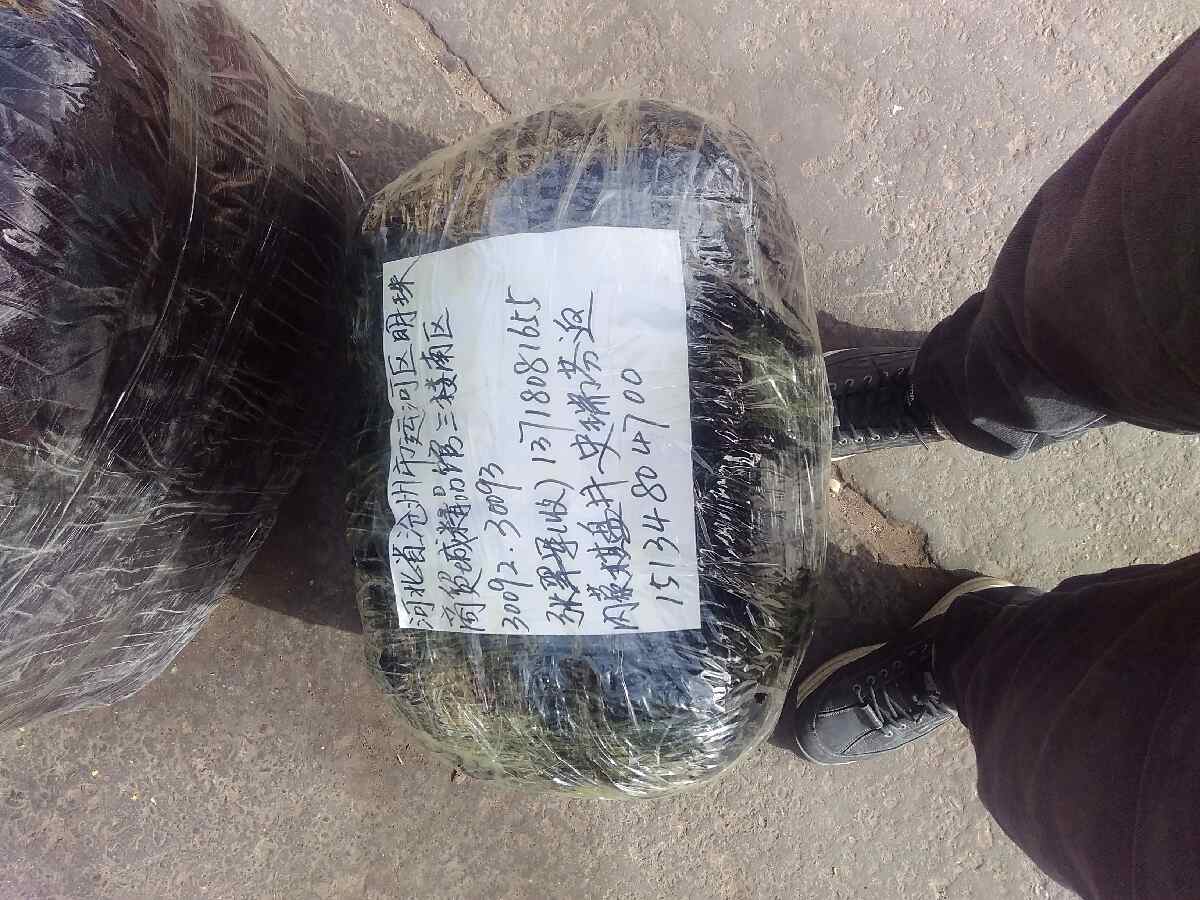 河北省沧州市运河区明珠
商贸城精品馆三楼南区
30092.30093
张翠翠(收) 13718081655
内蒙棋盘井 史瑞芬返
15134804700